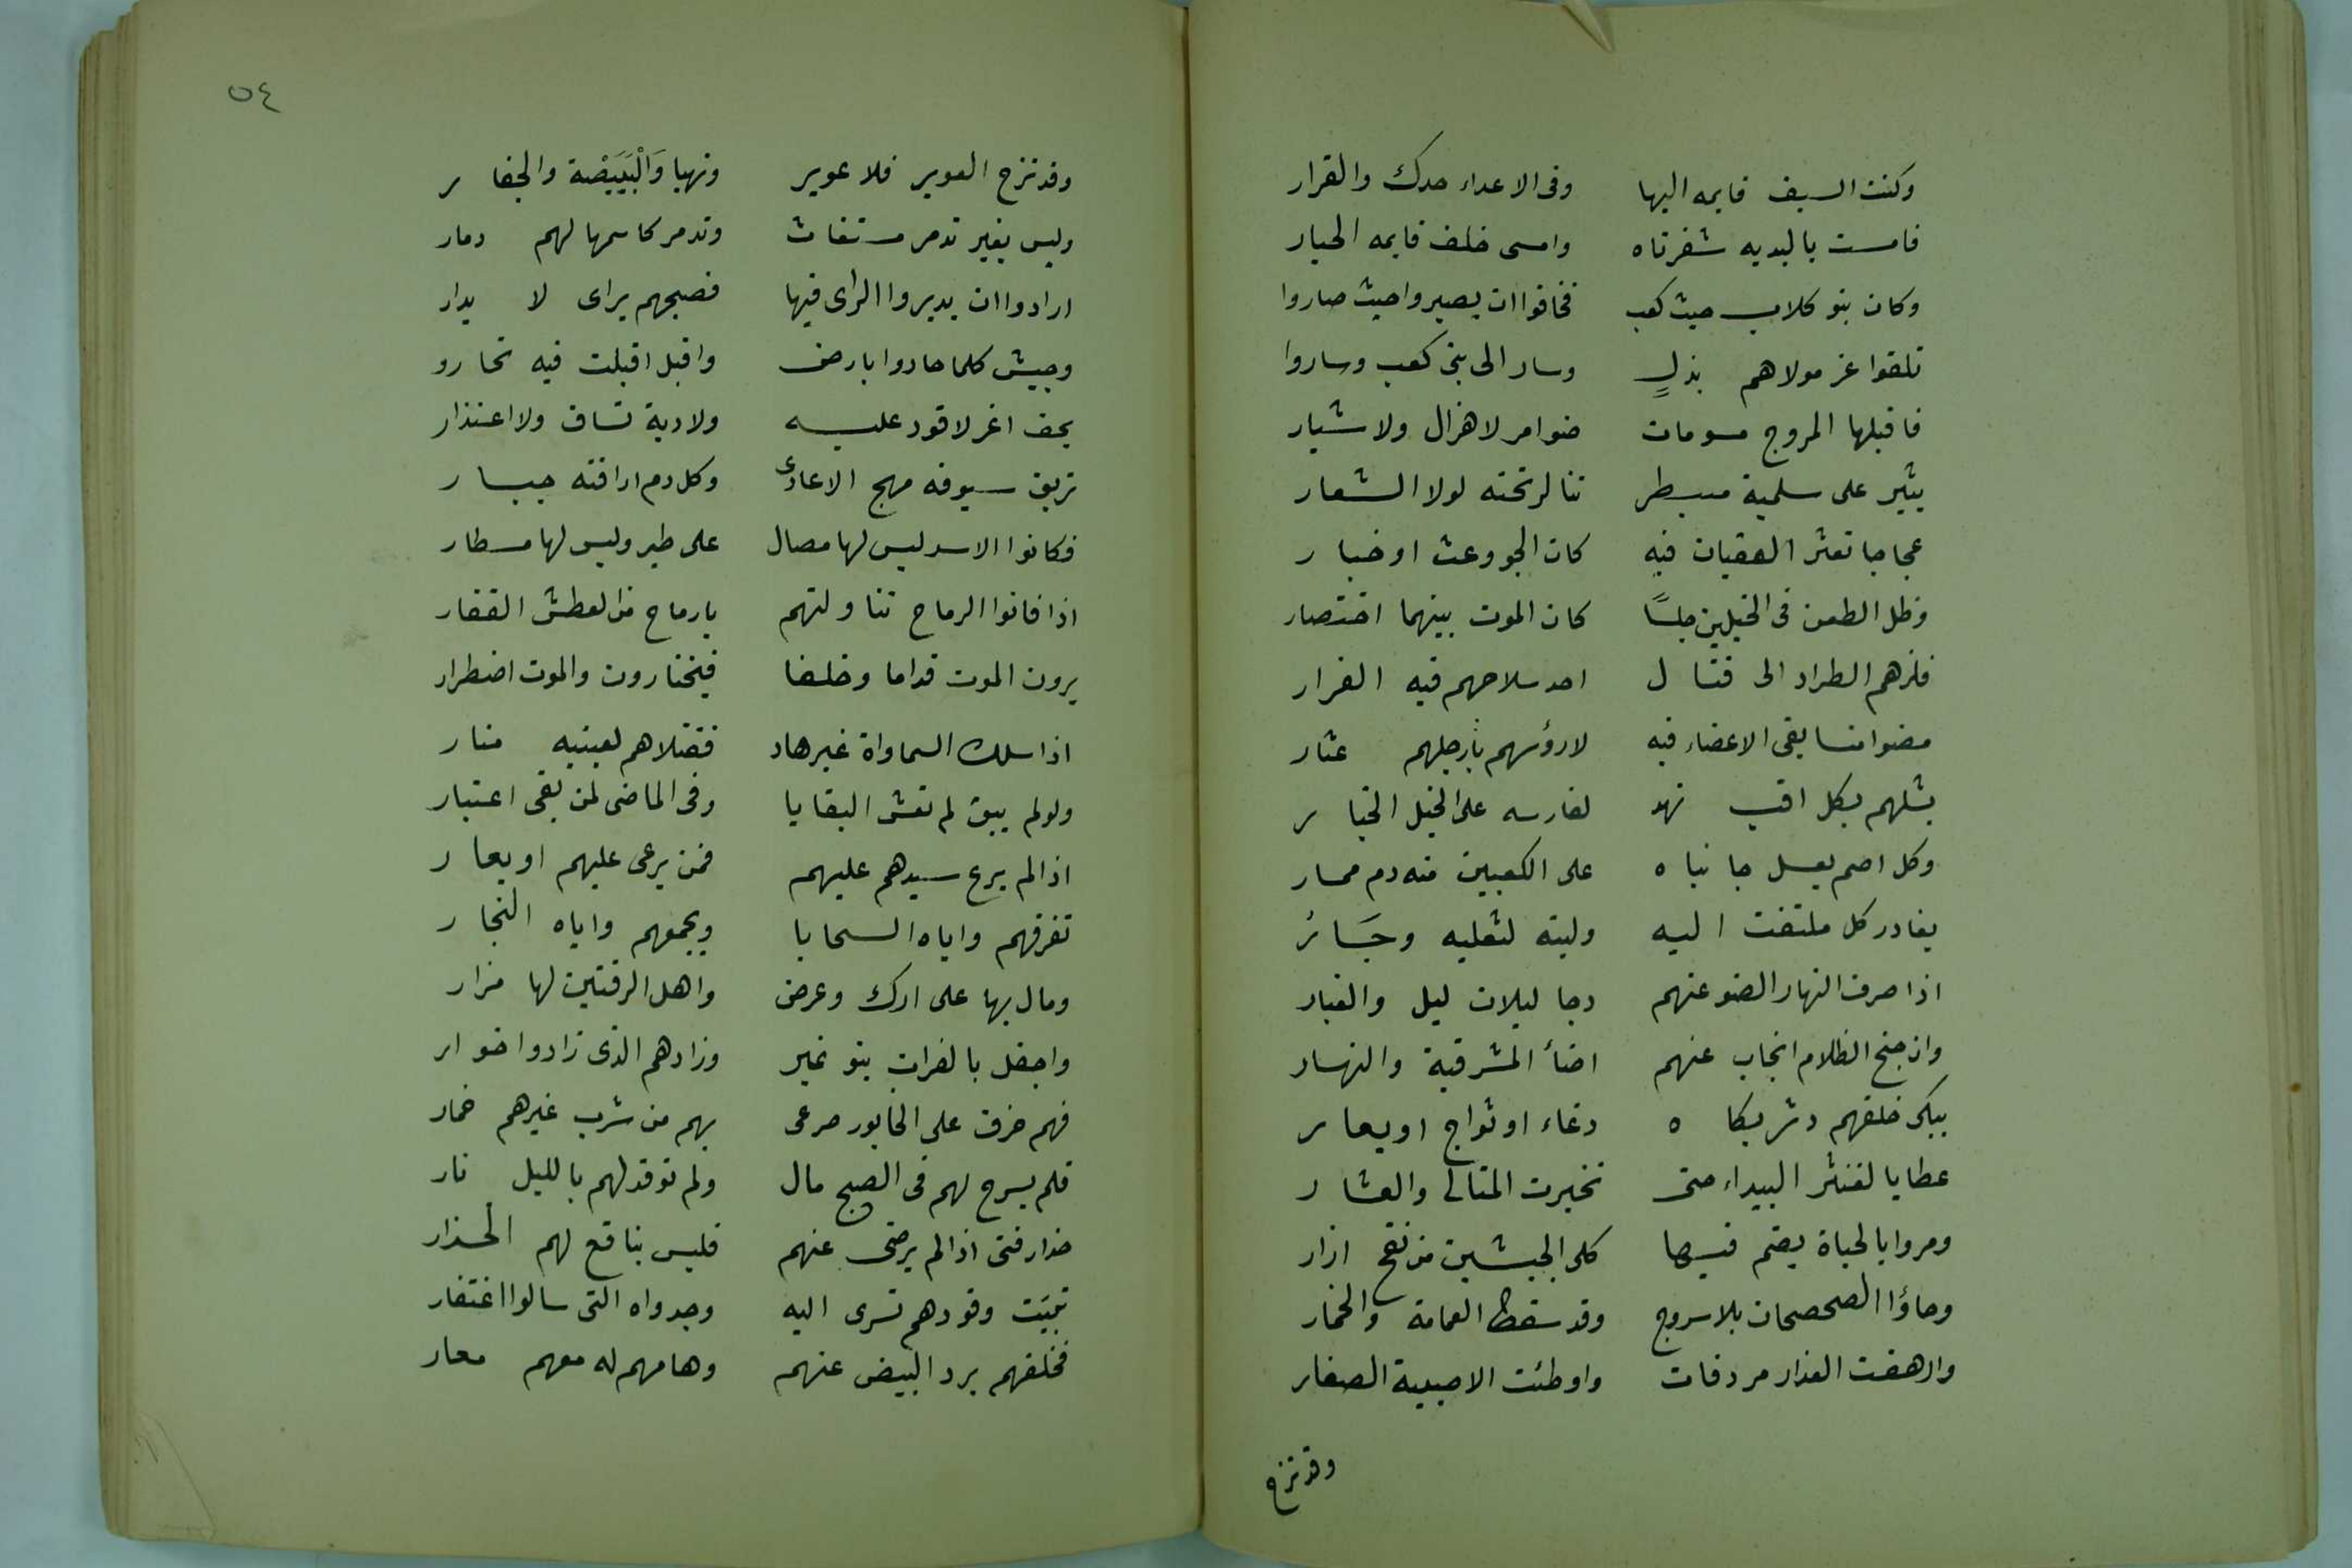 وكنت السيف قايمه اليها وفى الاعداء حدك والقرار
فامست بالبديه شفرتاه وامسى خلف قايمه الحيار
وكان بنو كلاب حيث كعب فخافوا ان يصيروا حيث صاروا
تلقوا عز مولاهم بذلٍ وسار الى بنى كعب وساروا
فاقبلها المروج مسومات ضوامر لا هزال ولا شيار
يثير على سلمية مسبطر تنا لر تحته لولا الشعار
عجاجا تعثر العقبان فيه كان الجو وعث او خبار
وظل الطعن فى الخيلين خلسًا كان الموت بينهما اختصار
فلزهم الطراد الى قتال احد سلاحهم فيه الفرار
مضوا متسابقى الاعضاء فيه لارؤسهم بأرجلهم عثار
يشلهم بكل اقب نهد لفارسه على الخيل الخيار
وكل اصم يعسل جانباه على الكعبين منه دم ممار
يغادر كل ملتفت اليه ولبته لثعلبه وجَار
اذا صرف النهار الضو عنهم دجا ليلان ليل والغبار
وان جنح الظلام انجاب عنهم اضأ المشرفية والنهار
يبكى خلفهم دثر بكاه رغاء او ثواج او يعار
غطا بالغنثر البيداء حتى تخيرت المتالى والعشار
ومروا بالحباة يضم فيها كلى الجيشين من نقع ازار
وجاؤا الصحصحان بلا سروج وقد سقط العمامة والخمار
وارهقت العذار مردفات واوطئت الاصيبية الصغار
وقد نزح
٥٤
وقد نزح العوير فلا عوير ونهيا وَالْبَيَيْضة والجفار
وليس بغير تدمر مستغاث وتدمر كاسمها لهم دمار
ارادوا ان يديروا الراى فيها فصبحهم براى لا يدار
وجيش كلما حاروا بارض واقبل اقبلت فيه تحارو
يحف اغر لا قود عليه ولا دية تساق ولا اعتذار
تريق سيوفه مهج الاعادى وكل دم اراقته جبار
فكانوا الاسد ليس لها مصال على طير وليس لها مطار
اذا فاتوا الرماح تناولتهم بارماح من العطش القفار
يرون الموت قداما وخلفا فيختارون والموت اضطرار
اذا سلك السماواة غير هاد فقتلاهم لعينيه منار
ولو لم يبق لم تعش البقايا وفى الماضى لمن بقى اعتبار
اذا لم يرع سيدهم عليهم فمن يرعى عليهم او يعار
تفرقهم واياه السجايا ويجمعهم واياه النجار
ومال بها على ارك وعرض واهل الرقتين لها مزار
واجفل بالفرات بنو نمير وزارهم الذى زاروا خوار
فهم خرق على الخابور صرعى بهم من شرب غيرهم خمار
فلم يسرح لهم فى الصبح مال ولم توقد لهم بالليل نار
حذار فتى اذا لم يرضى عنهم فليس بنافع لهم الحذار
تبيَت وفودهم تسرى اليه وجدواه التى سالوا اغتفار
فخلفهم برد البيض عنهم وهامهم له معهم معار